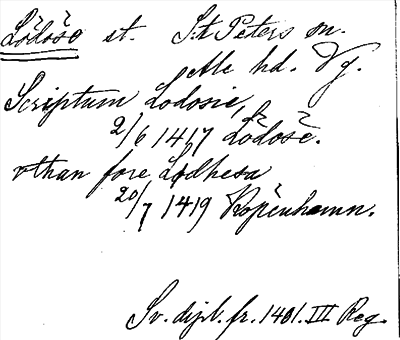 Lödöse st. S:t Peters sn.
Ale hd. Vg.
Scriptum Lodosie,
2/6 1417 Lödöse.
vthan fore Lødhesa
20/7 1419 Köpenhamn.
Sv. dipl. fr. 1401. III Reg.